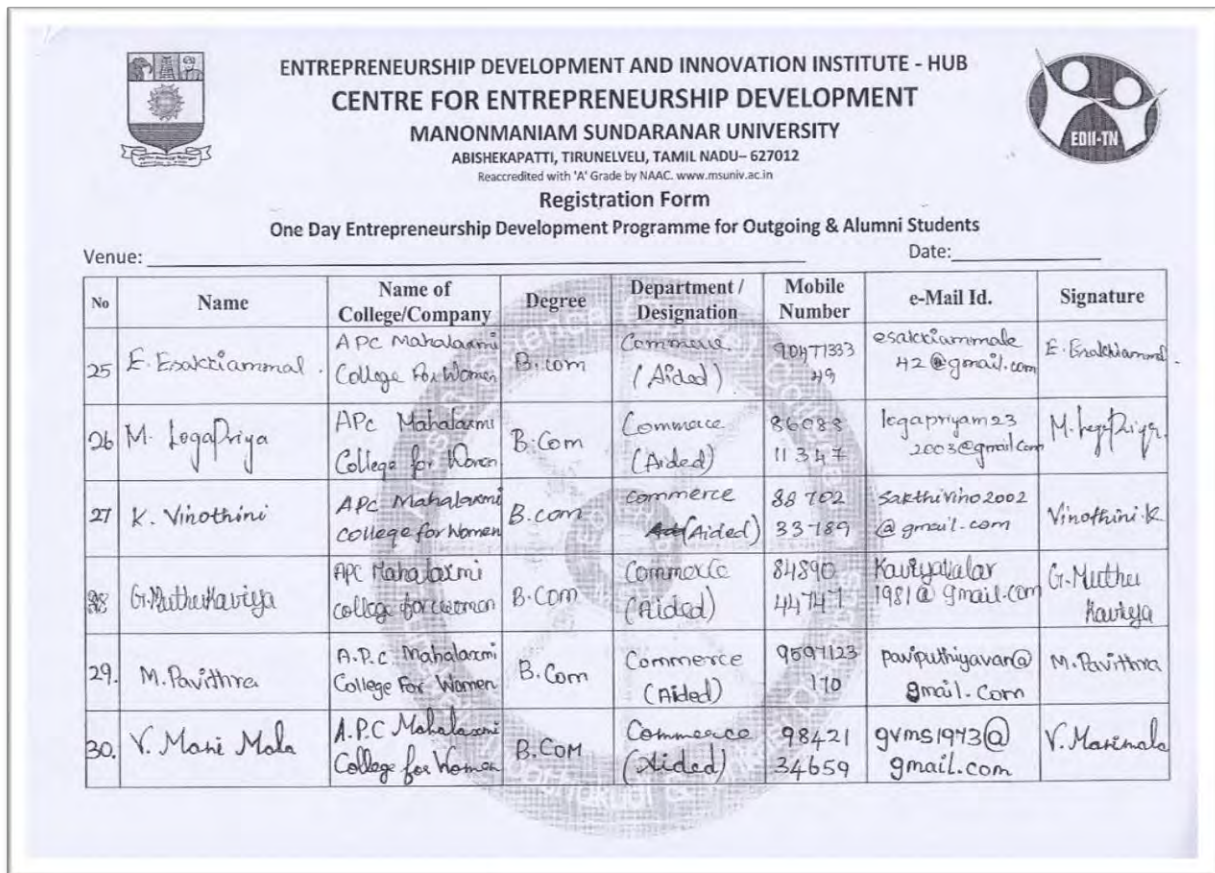 ENTREPRENEURSHIP DEVELOPMENT AND INNOVATION INSTITUTE - HUB
CENTRE FOR ENTREPRENEURSHIP DEVELOPMENT
MANONMANIAM SUNDARANAR UNIVERSITY
ABISHEKAPATTI, TIRUNELVELI, TAMIL NADU– 627012
Reaccredited with 'A' Grade by NAAC. www.msuniv.ac.in
EDII-TN
Registration Form
One Day Entrepreneurship Development Programme for Outgoing & Alumni Students
Venue: Date:
No Name Name of College/Company Degree Department / Designation Mobile Number e-Mail Id. Signature
25 E. Esakkiammal. APC Mahalaxmi College For Women B.com Commerce (Aided) 90477333 49 esakkiammale 42@gmail.com E. Esakkiammal.
26 M. LogaPriya APC Mahalaxmi College for Women B.Com Commerce (Aided) 86083 11347 logapriyam23 2003@gmail.com M. LogaPriya
27 K. Vinothini APC Mahalaxmi college for Women B.com commerce (Aided) 88702 33789 sakthivino2002 @gmail.com Vinothini.k
28 G.MuthuKaviya APC Mahalaxmi college for women B.Com Commerce (Aided) 84890 44747 1981@gmail.com G.Muthu Kaviya
29. M.Pavithra A.P.C Mahalaxmi College For Women B.Com Commerce (Aided) 9597123 170 paviputhiyavan@ gmail.com M.Pavithra
30. V. Mari Mala A.P.C Mahalaxmi College for Women B.COM Commerce (Aided) 98421 34659 gvms1973@ gmail.com V.Marimala